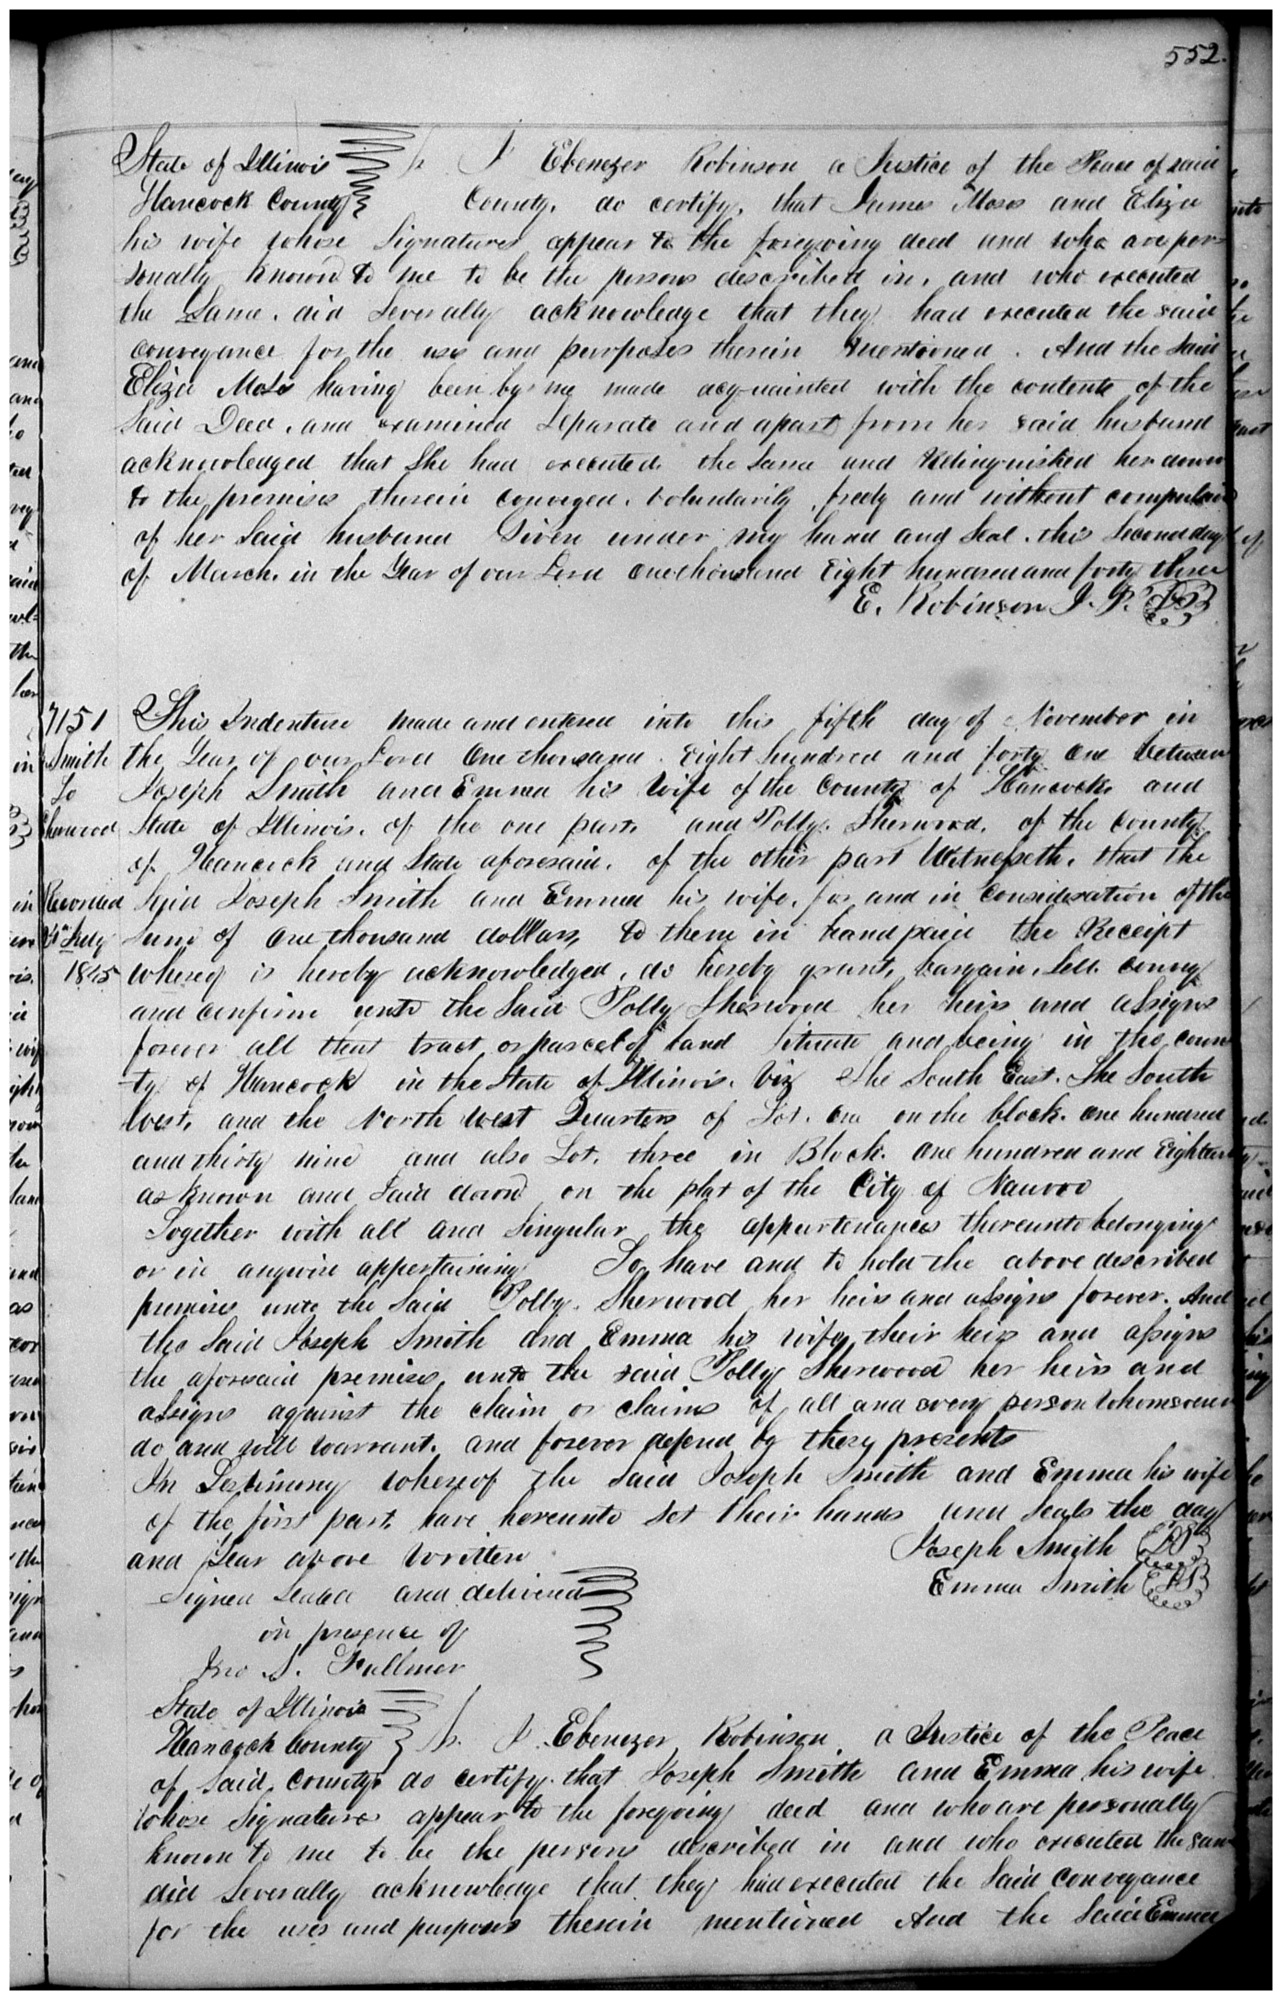 552.
State of Illinois
Hancock County
I Ebenezer Robinson a Justice of the Peace of said
County, do certify, that James Moses and Eliza
his wife whose Signatures appear to the foregoing deed and who are per-
sonally known to me to be the persons described in, and who executed
the Same, did Severally acknowledge that they had executed the said
conveyance for the uses and purposes therein mentioned. And the Said
Eliza Moses having been by me made acquainted with the contents of the
Said Deed, and examined Separate and apart from her said husband
acknowledged that She had executed the Same and Relinquished her dower
to the premises therein conveyed, voluntarily, freely and without compulsion
of her Said husband Given under my hand and Seal, this Second day
of March, in the Year of our Lord one thousand Eight hundred and forty three
E. Robinson J. P. LS
7151
Smith
To
Sherwood
Recorded
July
1845
This Indenture made and entered into this fifth day of November in
the Year of our Lord One thousand Eight hundred and forty One between
Joseph Smith and Emma his Wife of the County of Hancock, and
State of Illinois, of the one part, and Polly Sherwood, of the County
of Hancock and State aforesaid, of the other part Witnesseth, that the
Said Joseph Smith and Emma his wife, for and in Consideration of the
Sum of One thousand dollars, to them in hand paid the Receipt
whereof is hereby acknowledged, do hereby grant, bargain, Sell convey
and confirm unto the Said Polly Sherwood her heirs and assigns
forever all that tract or parcel of land Situate and being in the coun
ty of Hancock in the State of Illinois. Viz The South East. The South
West, and the North West Quarters of Lot. One on the block. One hundred
and thirty nine and also Lot, three in Block. One hundred and Eighteen
as known and Laid down on the plat of the City of Nauvoo
Together with all and Singular, the appurtenances thereunto belonging
or in anywise appertaining To have and to hold the above described
premises unto the Said Polly Sherwood her heirs and assigns forever. And
the Said Joseph Smith and Emma his wife, their heirs and assigns
the aforesaid premises, unto the said Polly Sherwood her heirs and
assigns against the claim or claims of, all and every person whomsoever
do and will warrant, and forever defend by these presents
In Testimony whereof the Said Joseph Smith and Emma his wife
of the first part, have hereunto set their hands and Seals the day
and Year above written
Joseph Smith LS
Emma Smith LS
Signed Sealed and delivered
in presence of
Jno S. Fullmer
State of Illinois
Hancock County
I Ebenezer Robinson, a Justice of the Peace
of Said, County, do certify, that Joseph Smith and Emma his wife
whose Signatures appear to the foregoing deed and who are personally
known to me to be the persons described in and who executed the same
did Severally acknowledge that they had executed the Said conveyance
for the uses and purposes therein mentioned And the Said Emma